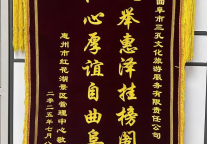 曲阜市三孔文化旅游服务有限责任公司
举惠泽挂榜阁
心厚谊自曲阜
惠州市红花湖景区管理中心敬
二零二五年七月八